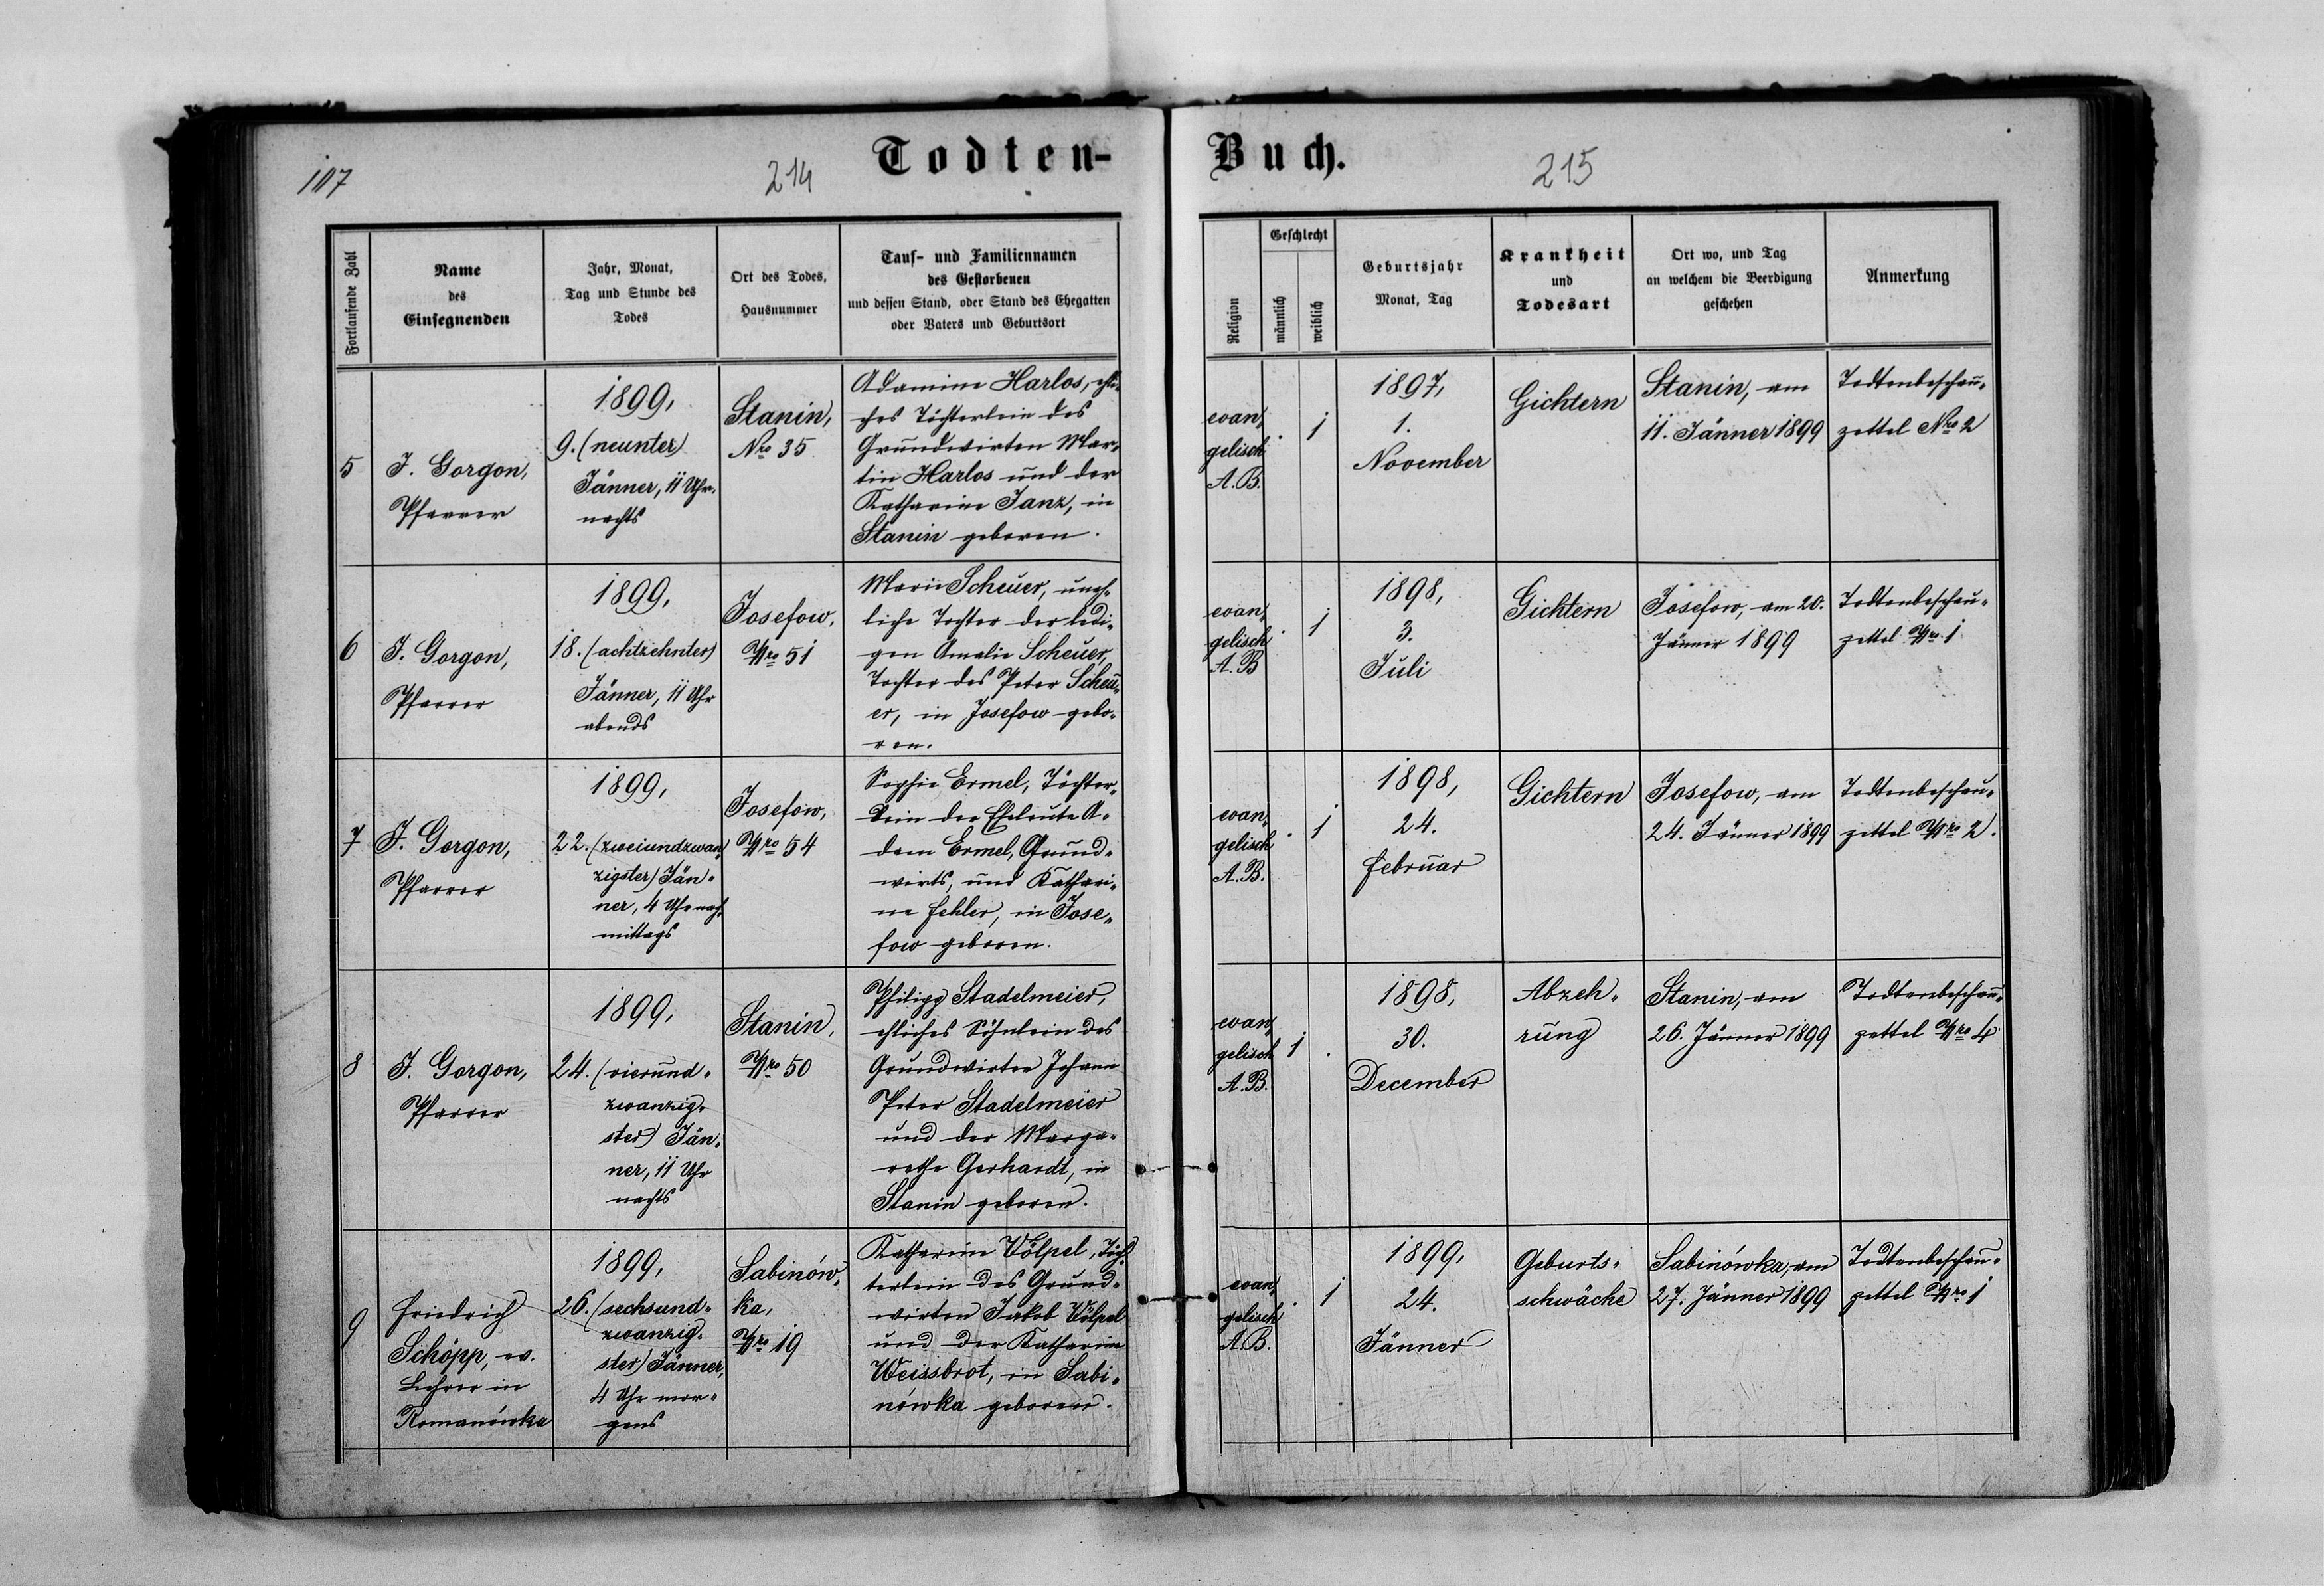 107
214
Todten-
Buch.
215
Fortlaufende Zahl
Name
des
Einsegnenden
Jahr, Monat,
Tag und Stunde des
Todes
Ort des Todes,
Hausnummer
Tauf- und Familiennamen
des Gestorbenen
und dessen Stand, oder Stand des Ehegatten
oder Vaters und Geburtsort
Religion
Geschlecht
männlich
weiblich
Geburtsjahr
Monat, Tag
Krankheit
und
Todesart
Ort wo, und Tag
an welchem die Beerdigung
geschehen
Anmerkung
5
J. Gorgon,
Pfarrer
1899,
9. (neunter)
Jänner, 11 Uhr
nachts
Stanin,
Nro 35
Adamine Harlos, ehli-
ches Töchterlein des
Grundwirten Mar-
tin Harlos und der
Katharine Janz, in
Stanin geboren.
evan-
gelisch
A. B.
. 1
1897,
1.
November
Gichtern
Stanin, am
11. Jänner 1899
Todtenbeschau-
zettel Nro 2
6
J. Gorgon,
Pfarrer
1899,
18. (achtzehnter)
Jänner, 11 Uhr
abends
Josefow,
Nro 51
Marie Scheuer, uneh-
liche Tochter der ledi-
gen Amalie Scheuer,
Tochter des Peter Scheu-
er, in Josefow gebo-
ren.
evan-
gelisch
A. B
. 1
1898,
3.
Juli
Gichtern
Josefow, am 20.
Jänner 1899
Todtenbeschau-
zettel Nro 1
7
J. Gorgon,
Pfarrer
1899,
22. (zweiundzwan-
zigster) Jän-
ner, 4 Uhr nach-
mittags
Josefow,
Nro 54
Sophie Ermel, Töchter-
lein der Eheleute A-
dam Ermel, Grund-
wirts, und Kathari-
ne Fehler, in Jose-
fow geboren.
evan-
gelisch
A. B.
. 1
1898,
24.
Februar
Gichtern
Josefow, am
24. Jänner 1899
Todtenbeschau-
zettel Nro 2.
8
J. Gorgon,
Pfarrer
1899,
24. (vierund-
zwanzig-
ster) Jän-
ner, 11 Uhr
nachts
Stanin,
Nro 50
Philipp Stadelmeier,
ehliches Söhnlein des
Grundwirten Johann
Peter Stadelmeier
und der Marga-
rethe Gerhardt, in
Stanin geboren.
evan-
gelisch
A. B.
1 .
1898,
30.
December
Abzeh-
rung
Stanin, am
26. Jänner 1899
Todtenbeschau-
zettel Nro 4
9
Friedrich
Schöpp, ev.
Lehrer in
Romanówka
1899,
26. (sechsund-
zwanzig-
ster) Jänner,
4 Uhr mor-
gens
Sabinów-
ka,
Nro 19
Katharine Völpel, Töch-
terlein des Grund-
wirten Jakob Völpel
und der Katharine
Weissbrot, in Sabi-
nówka geboren.
evan-
gelisch
A. B.
. 1
1899,
24.
Jänner
Geburts-
schwäche
Sabinówka, am
27. Jänner 1899
Todtenbeschau-
zettel Nro 1